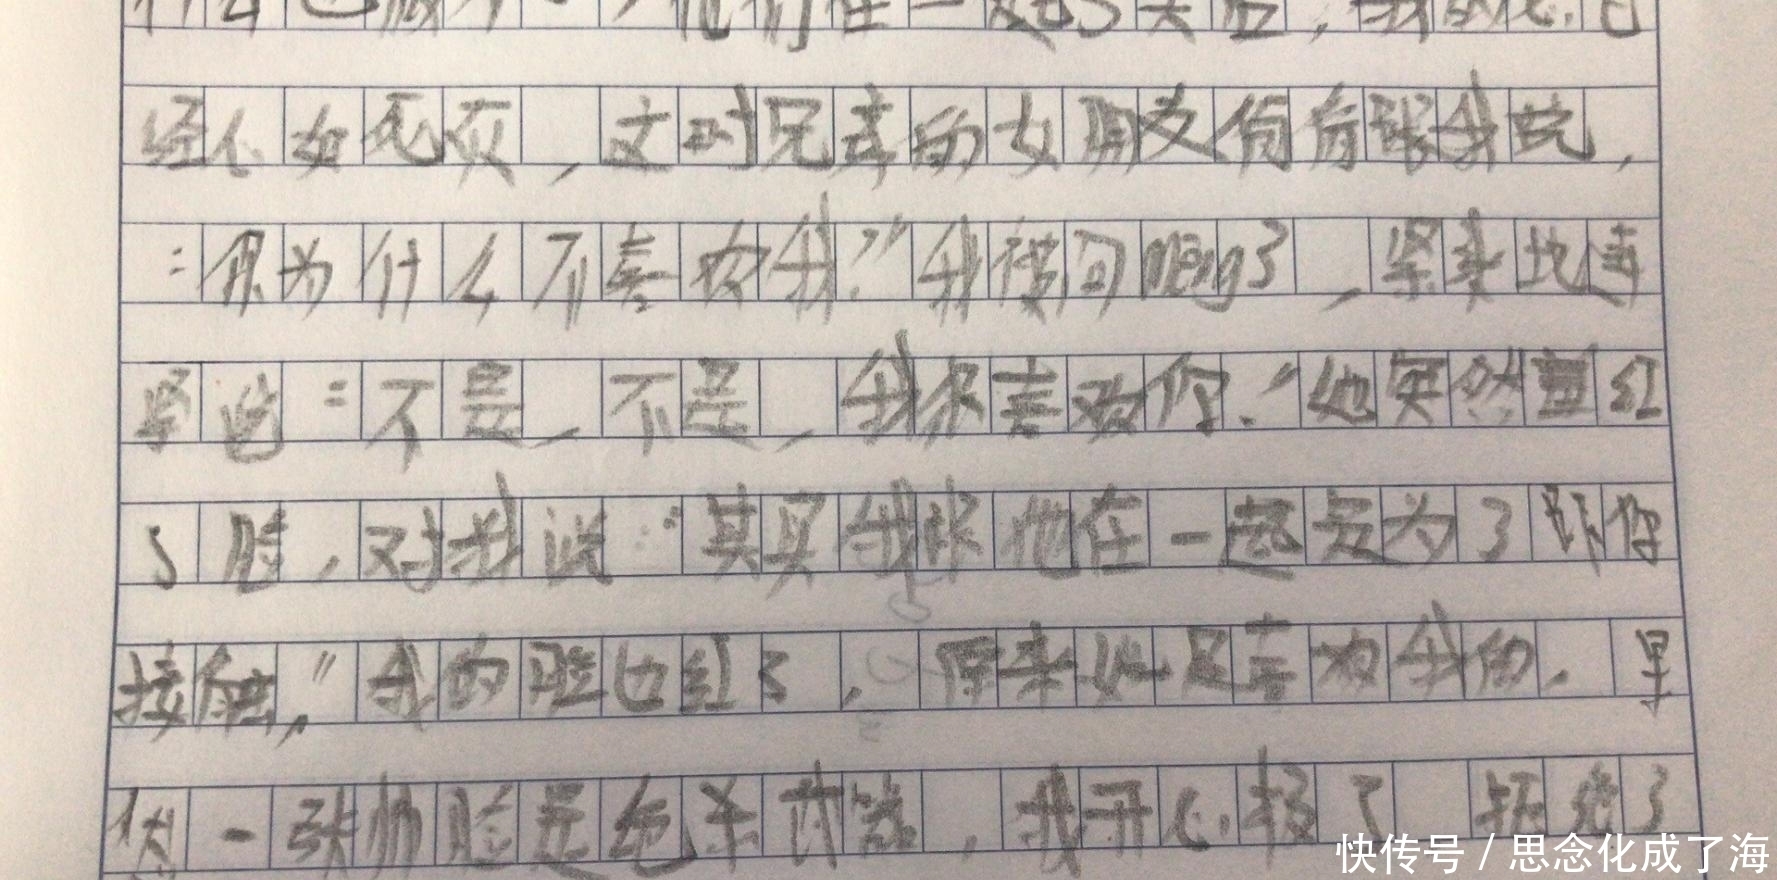 他们在一起3天后，我的心已
经心如死灰，这时兄弟的女朋友偷偷跟我说，
：你为什么不喜欢我？”我被问懵了，紧张地连
坚说：不是，不是，我很喜欢你．“她突然红
了脸，对我说：“其实我跟他在一起是为了跟你
接触，”我的脸也红了，原来她是喜欢我的．果
然一张帅脸是绝杀武器，我开心极了 拒绝了
快传号 / 思念化成了海